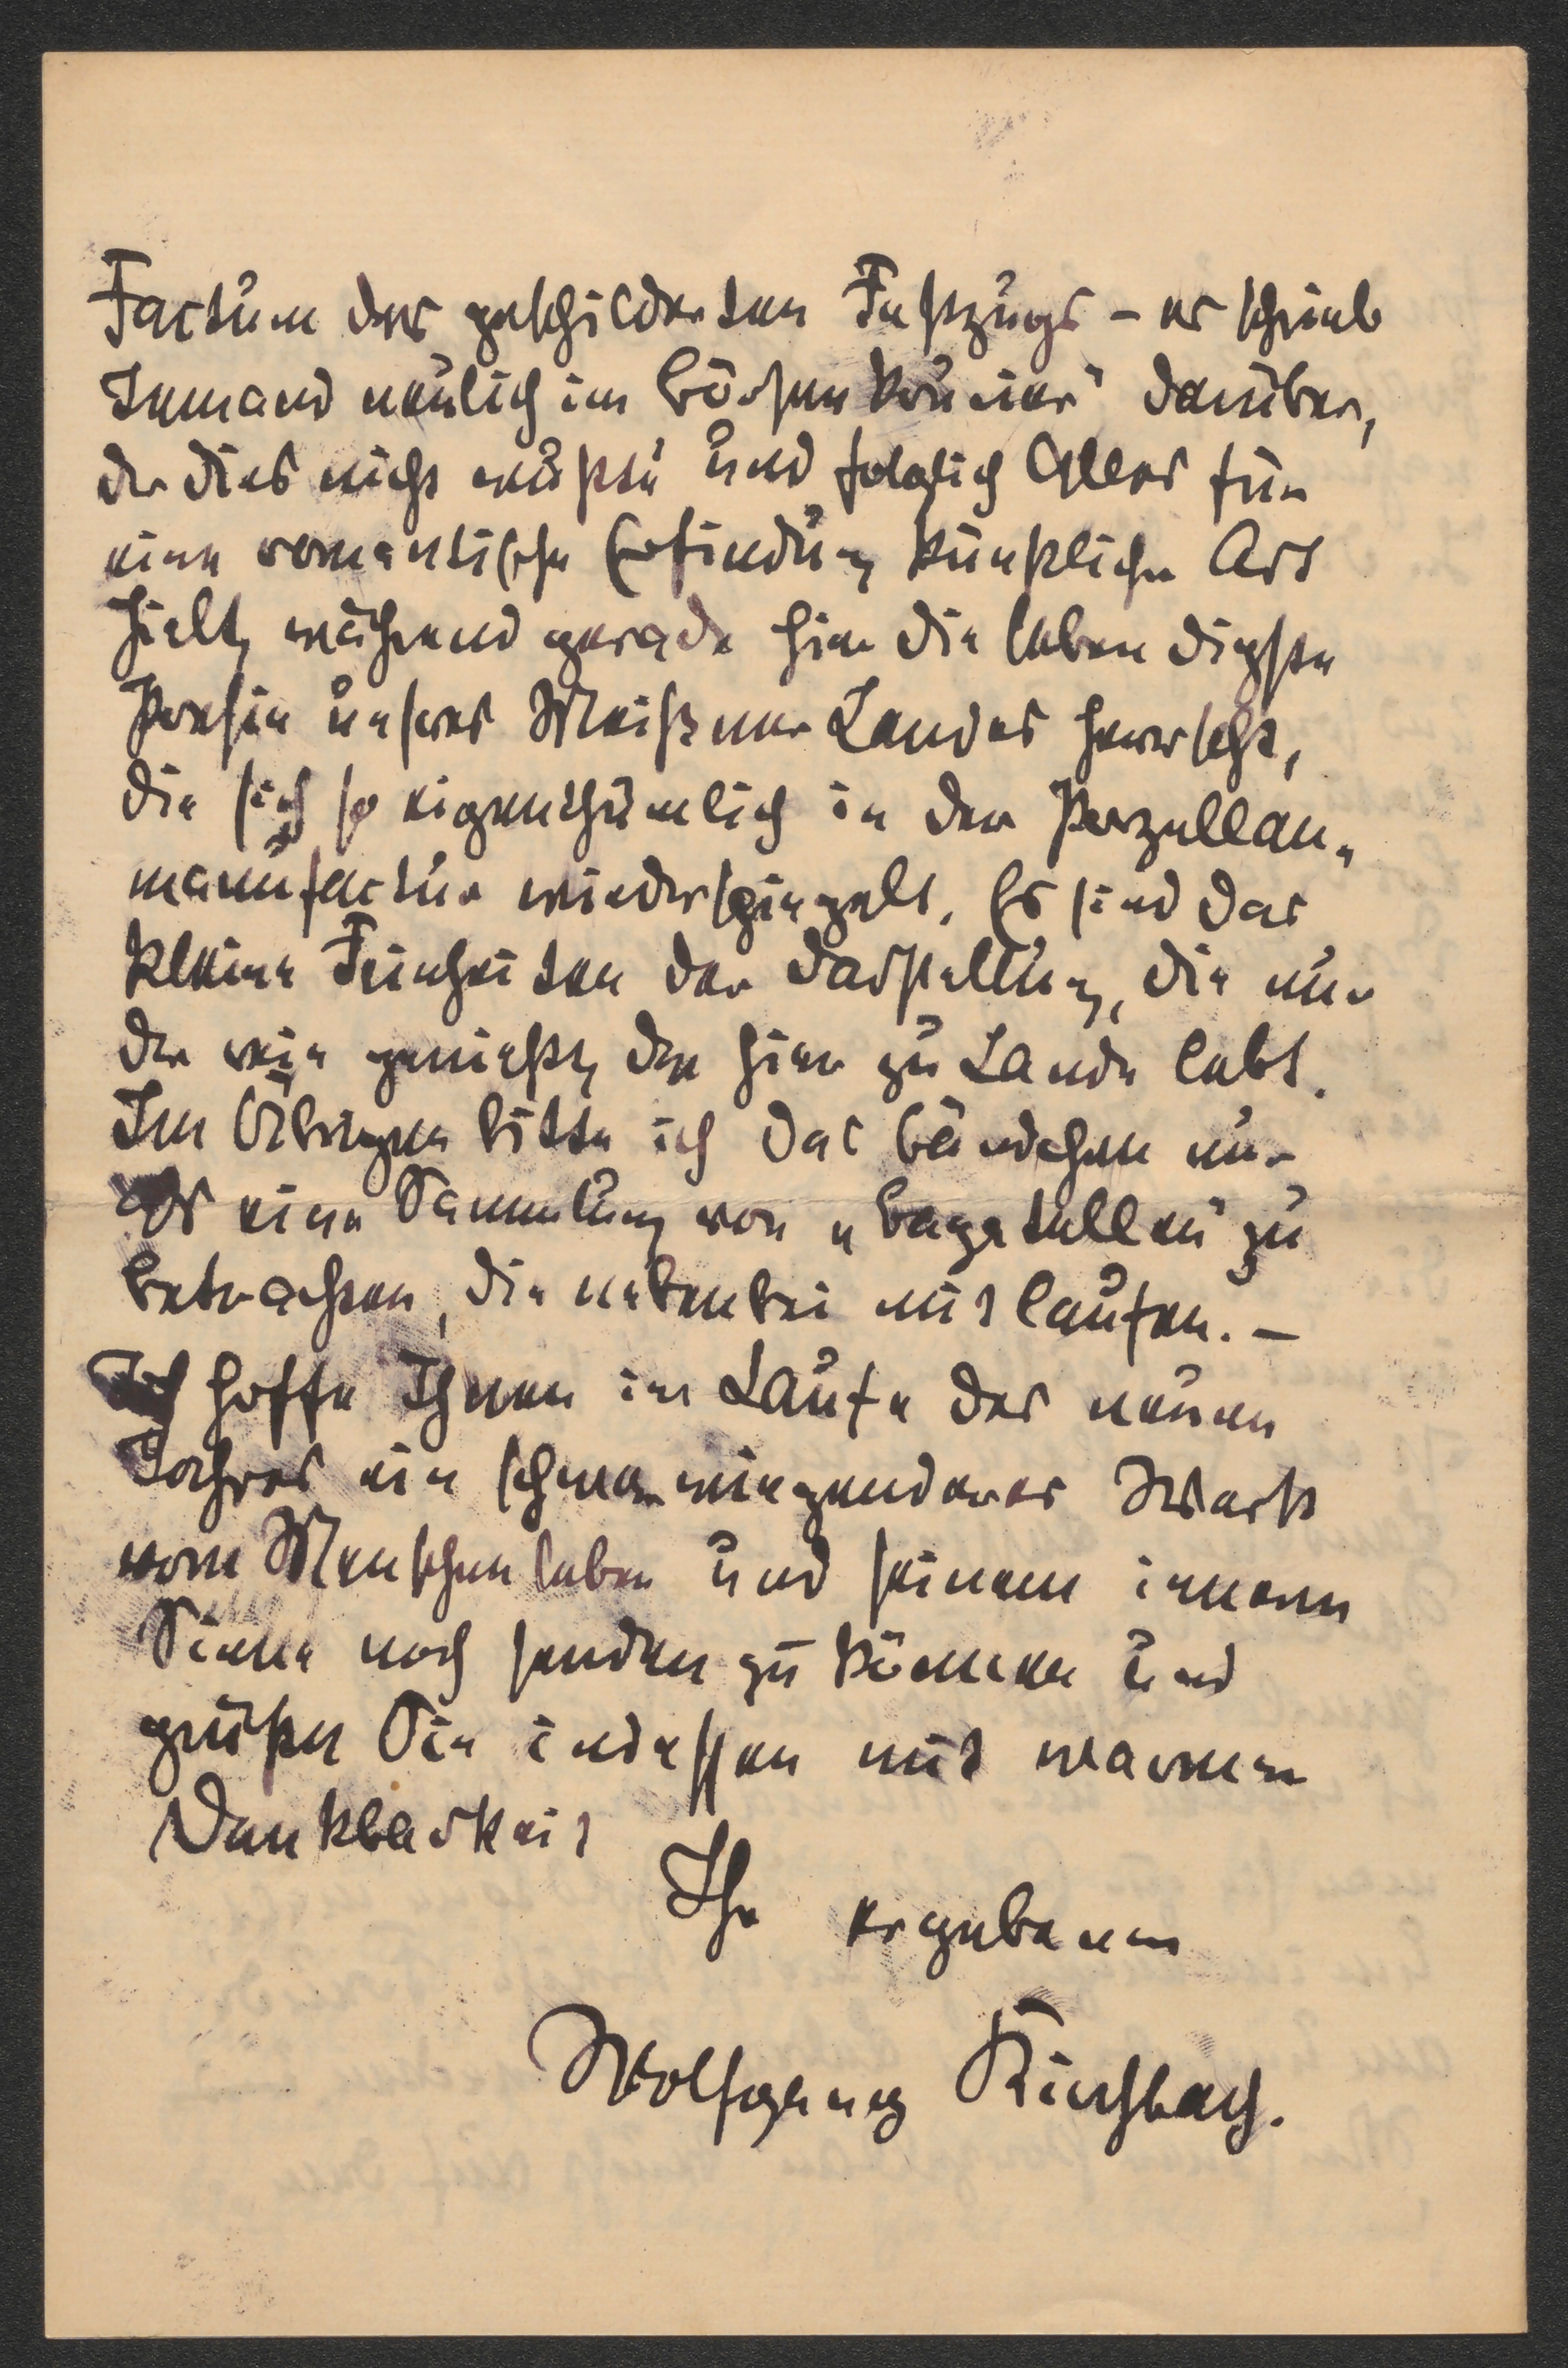 Factum des geschilderten Festzugs – es schrieb
Jemand neulich im Börsenkourier" darüber,
der dies nicht wußte und folglich Alles für
eine romantische Erfindung künstlicher Art
hielt, während gerade hier die lebendigste
Poesie unsres Meißner Landes herrscht,
die sich so eigenthümlich in der Porzellan„
manufactur wiederspiegelt. Es sind das
kleine Feinheiten der Darstellung, die nur
der rein genießt, der hier zu Lande lebt.
Im Übrigen bitte ich das Bändchen nur
als eine Sammlung von „Bagatellen" zu
betrachten, die nebenbei mit laufen. –
Ich hoffe Ihnen im Laufe des neuen
Jahres ein schwerwiegenderes Werk
vom Menschenleben und seinem innern
Sinne noch senden zu können und
grüße Sie indessen mit warmer
Dankbarkeit
Ihr ergebener
Wolfgang Kirchbach.